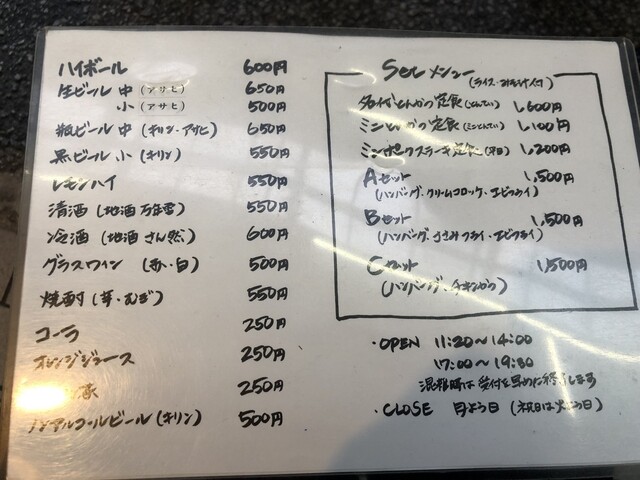 ハイボール 600円
生ビール 中 (アサヒ) 650円
小 (アサヒ) 500円
瓶ビール 中 (キリン・アサヒ) 650円
黒ビール 小 (キリン) 550円
レモンハイ 550円
清酒 (地酒 万年雪) 550円
冷酒 (地酒 さん然) 600円
グラスワイン (赤・白) 500円
焼酎 (芋・むぎ) 550円
コーラ 250円
オレンジジュース 250円
茶 250円
ノンアルコールビール (キリン) 500円
Set メニュー
(ライス・みそ汁付)
名代とんかつ定食 (とんてい) 1,600円
ミニとんかつ定食 (ミニとんてい) 1,100円
ミニポークステーキ定食 (平日) 1,200円
Aセット 1,500円
(ハンバーグ、クリームコロッケ・エビフライ)
Bセット 1,500円
(ハンバーグ、ささみフライ・エビフライ)
Cセット 1,500円
(ハンバーグ、チキンかつ)
・OPEN 11:20〜14:00
17:00〜19:30
混雑時は受付を早めに終了します
・CLOSE 月よう日 (祝日は火よう日)